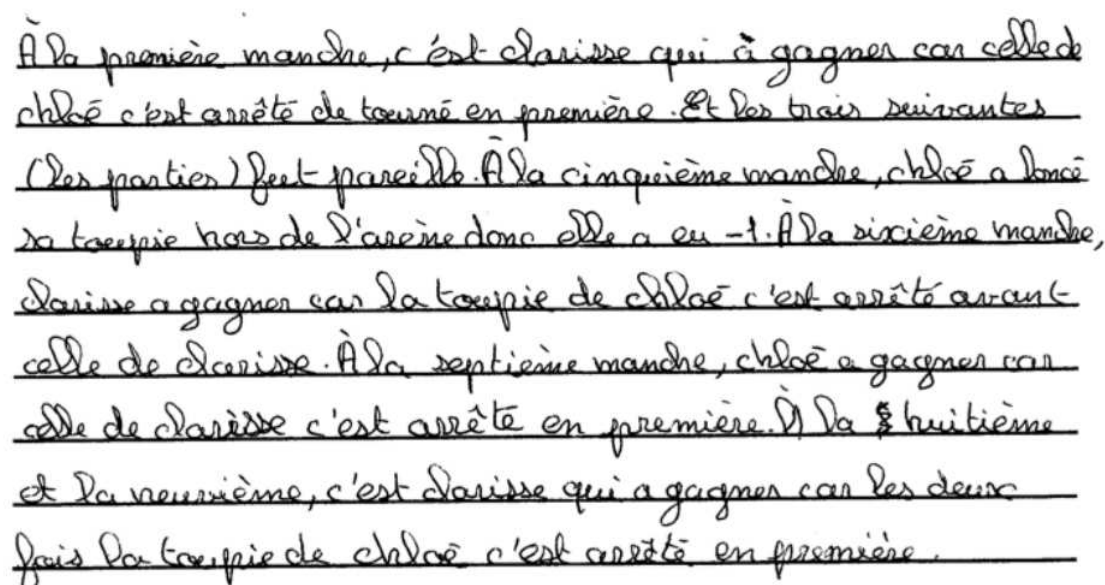 À la première manche, c'est clarisse qui à gagner car celle de
chloé c'est arrêté de tourné en première. Et les trois suivantes
(les parties) fut pareille. À la cinquième manche, chloé a lancé
sa toupie hors de l'arène donc elle a eu -1. À la sixième manche,
clarisse a gagner car la toupie de chloé c'est arrêté avant
celle de clarisse. À la septième manche, chloé a gagner car
celle de clarisse c'est arrêté en première. À la huitième
et la neuvième, c'est clarisse qui a gagner car les deux
fois la toupie de chloé c'est arrêté en première.